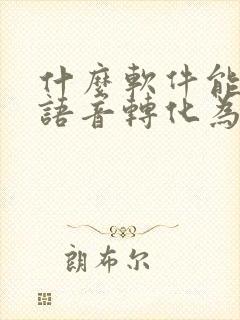 什麼軟件能
語音轉化為
朗布尔